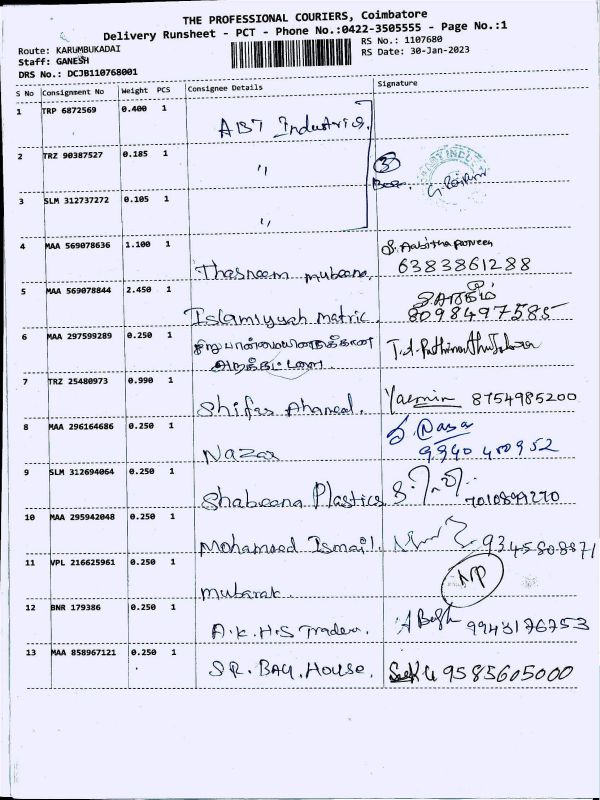 THE PROFESSIONAL COURIERS, Coimbatore
Delivery Runsheet - PCT - Phone No.:0422-3505555 - Page No.:1
Route: KARUMBUKADAI
Staff: GANESH
DRS No.: DCJB110768001
RS No.: 1107680
RS Date: 30-Jan-2023
S No Consignment No Weight PCS Consignee Details Signature
1 TRP 6872569 0.400 1 ABT Industries.
2 TRZ 90387527 0.185 1 "
3 SLM 312737272 0.105 1 "
4 MAA 569078636 1.100 1 Thasneem mubeena. 6383861288
5 MAA 569078844 2.450 1 Islamiyyah matric. 8098497585
6 MAA 297599289 0.250 1
7 TRZ 25480973 0.990 1 Shifas Ahamed. Yasmin 8754985200
8 MAA 296164686 0.250 1 Nazar
9 SLM 312694064 0.250 1 Shabeena Plastics 7010899270
10 MAA 295942048 0.250 1 Mohamed Ismail. 9345808871
11 VPL 216625961 0.250 1 mubarak. MP
12 BNR 179386 0.250 1 A.K.H.S Traders. 9943176753
13 MAA 858967121 0.250 1 S.R. BAG. House. 9585605000